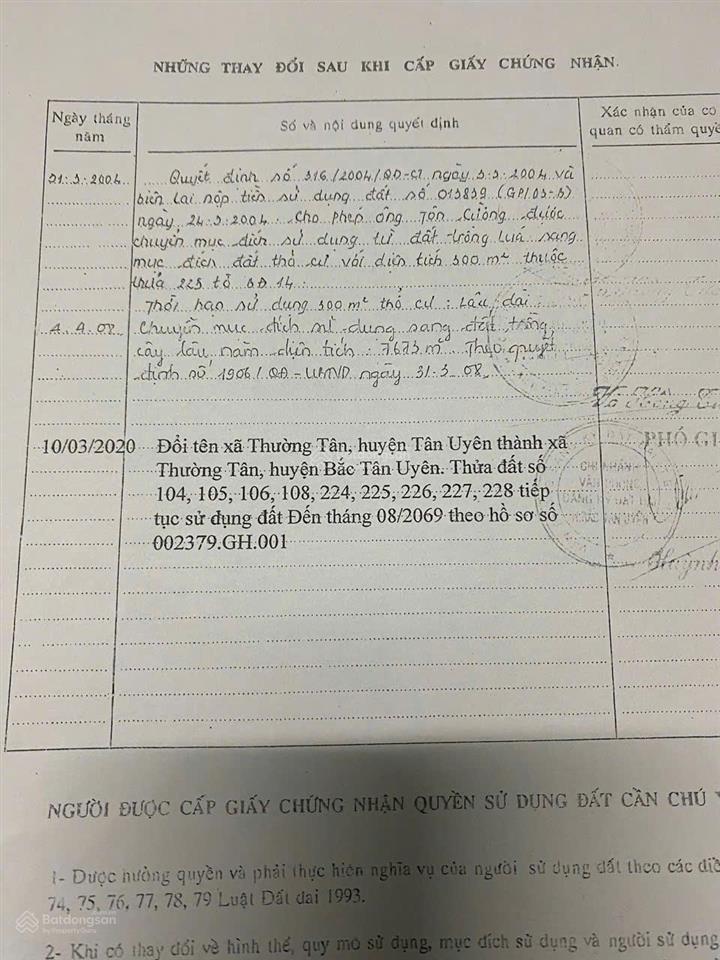 NHỮNG THAY ĐỔI SAU KHI CẤP GIẤY CHỨNG NHẬN.
Ngày tháng năm
Số và nội dung quyết định
Xác nhận của cơ
quan có thẩm quyề
31.3.2004
Quyết định số 316/2004/QĐ-CT ngày 3.3.2004 và
biên lai nộp tiền sử dụng đất số 013839 (GP/03-B)
ngày 24.3.2004. Cho phép ông Tôn Cường được
chuyển mục đích sử dụng từ đất trồng luá sang
mục đích đất thổ cư với diện tích 300 m² thuộc
thửa 225 tờ BĐ 14.
Thời hạn sử dụng 300 m² thổ cư: Lâu dài.
4.4.08
Chuyển mục đích sử dụng sang đất trồng
cây lâu năm diện tích: 7673 m². Theo quyết
định số 1906/QĐ-UBND ngày 31.3.08
10/03/2020
Đổi tên xã Thường Tân, huyện Tân Uyên thành xã
Thường Tân, huyện Bắc Tân Uyên. Thửa đất số
104, 105, 106, 108, 224, 225, 226, 227, 228 tiếp
tục sử dụng đất Đến tháng 08/2069 theo hồ sơ số
002379.GH.001
PHÓ GI
CHI NHÁNH
VĂN PHÒNG
ĐĂNG KÝ ĐẤT ĐAI
BẮC TÂN UYÊN
Huỳnh
NGƯỜI ĐƯỢC CẤP GIẤY CHỨNG NHẬN QUYỀN SỬ DỤNG ĐẤT CẦN CHÚ Ý
1- Được hưởng quyền và phải thực hiện nghĩa vụ của người sử dụng đất theo các điề
74, 75, 76, 77, 78, 79 Luật Đất đai 1993.
Batdongsan
by PropertyGuru
2- Khi có thay đổi về hình thể, quy mô sử dụng, mục đích sử dụng và người sử dụng